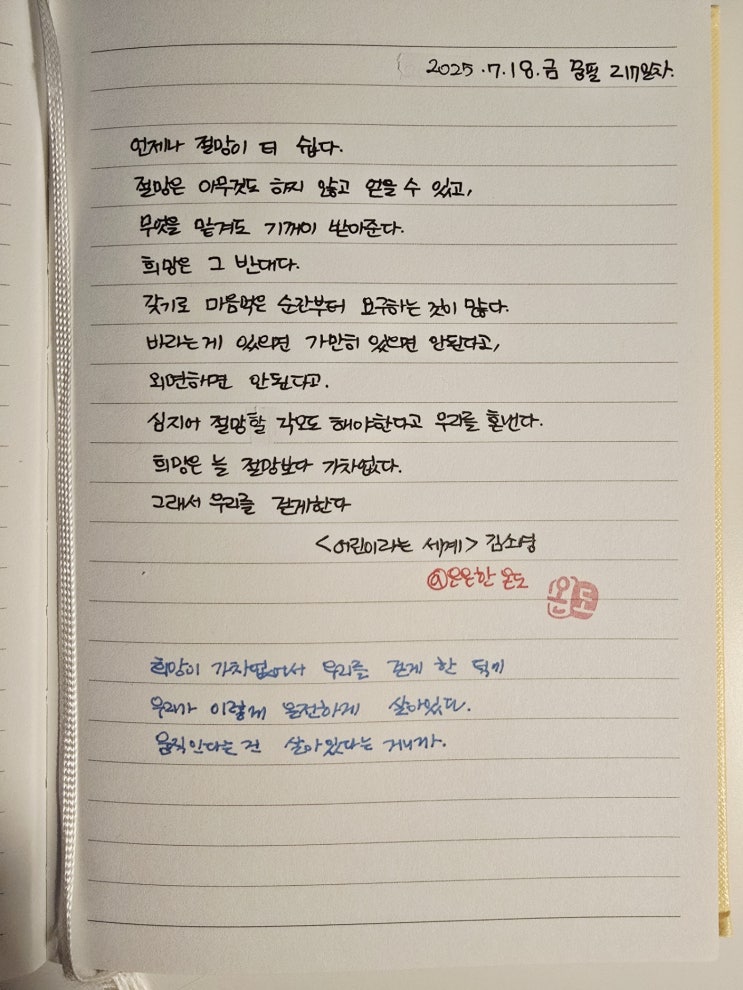 2025.7.18.금 꿈필 217일차.
언제나 절망이 더 쉽다.
절망은 아무것도 하지 않고 얻을 수 있고,
무엇을 맡겨도 기꺼이 받아준다.
희망은 그 반대다.
갖기로 마음먹은 순간부터 요구하는 것이 많다.
바라는게 있으면 가만히 있으면 안된다고,
외면하면 안된다고.
심지어 절망할 각오도 해야한다고 우리를 혼낸다.
희망은 늘 절망보다 가차없다.
그래서 우리를 걷게한다
<어린이라는 세계> 김소영
@온온한 온도
온도
희망이 가차없어서 우리를 걷게 한 덕에
우리가 이렇게 온전하게 살아있다.
움직인다는건 살아있다는 거니까.